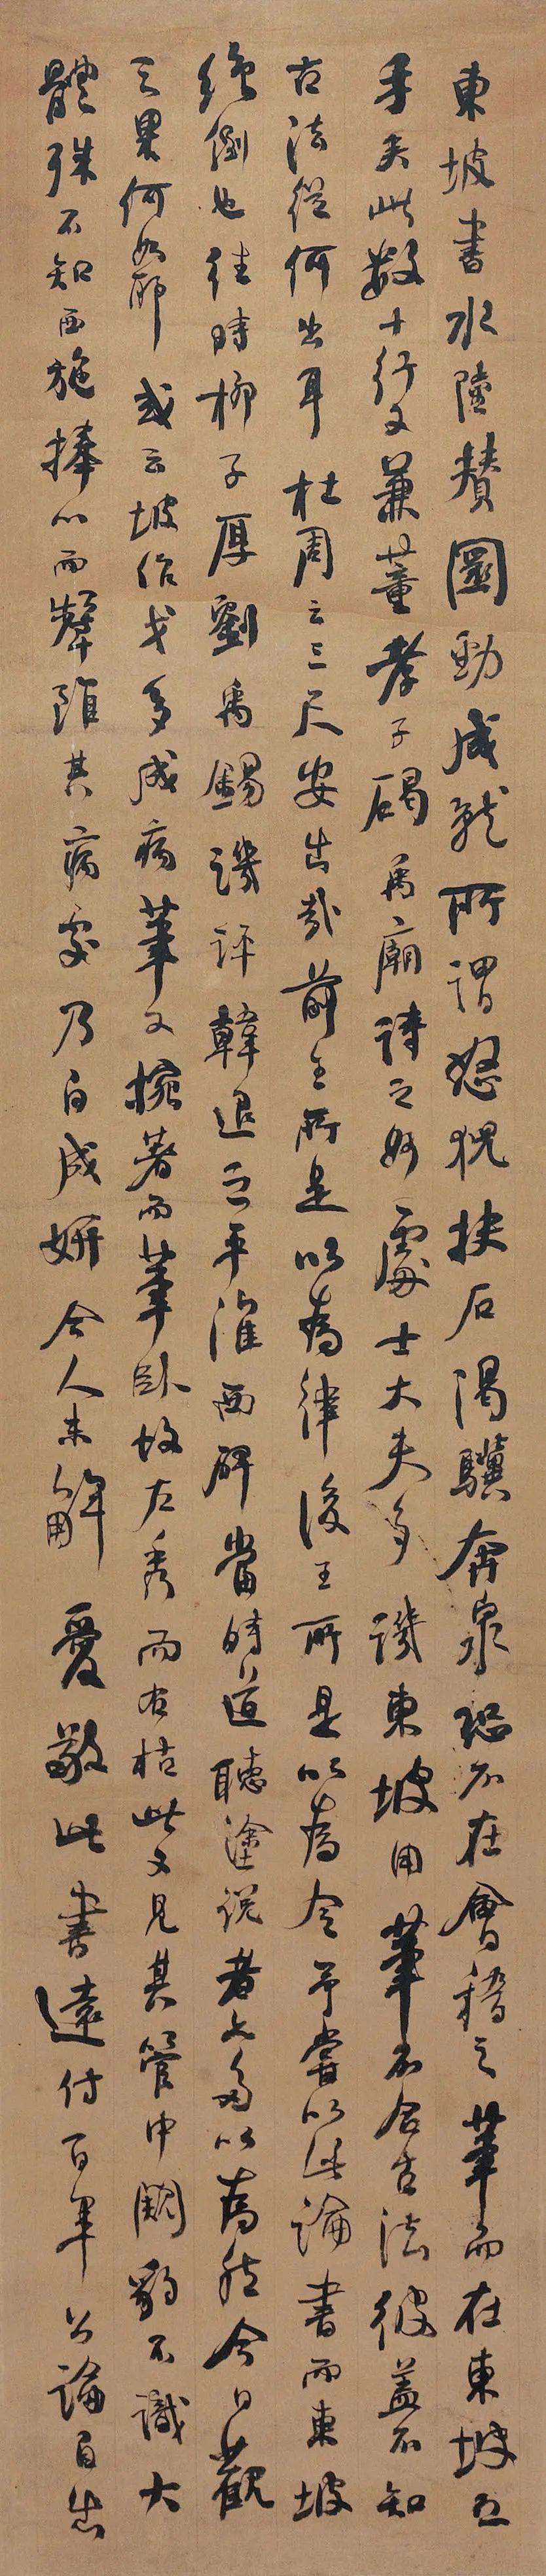 東坡書水陸贊圓勁成就所謂怒猊抉石渴驥奔泉恐不在會稽之筆而在東坡之
手矣此數十行又兼董孝子碣禹廟詩之妙處士大夫多譏東坡用筆不合古法彼蓋不知
古法從何出耳杜周云三尺安出哉前王所是以為律後王所是以為令予嘗以此論書而東坡
絕倒也往時柳子厚劉禹錫譏評韓退之平淮西碑當時道聽塗說者亦多以為然今日觀
之果何如耶或云坡作戈多成病筆又腕著而筆臥故左秀而右枯此又見其管中闚豹不識大
體殊不知西施捧心而顰雖其病處乃自成妍今人未解愛敬此書遠付百年公論自出